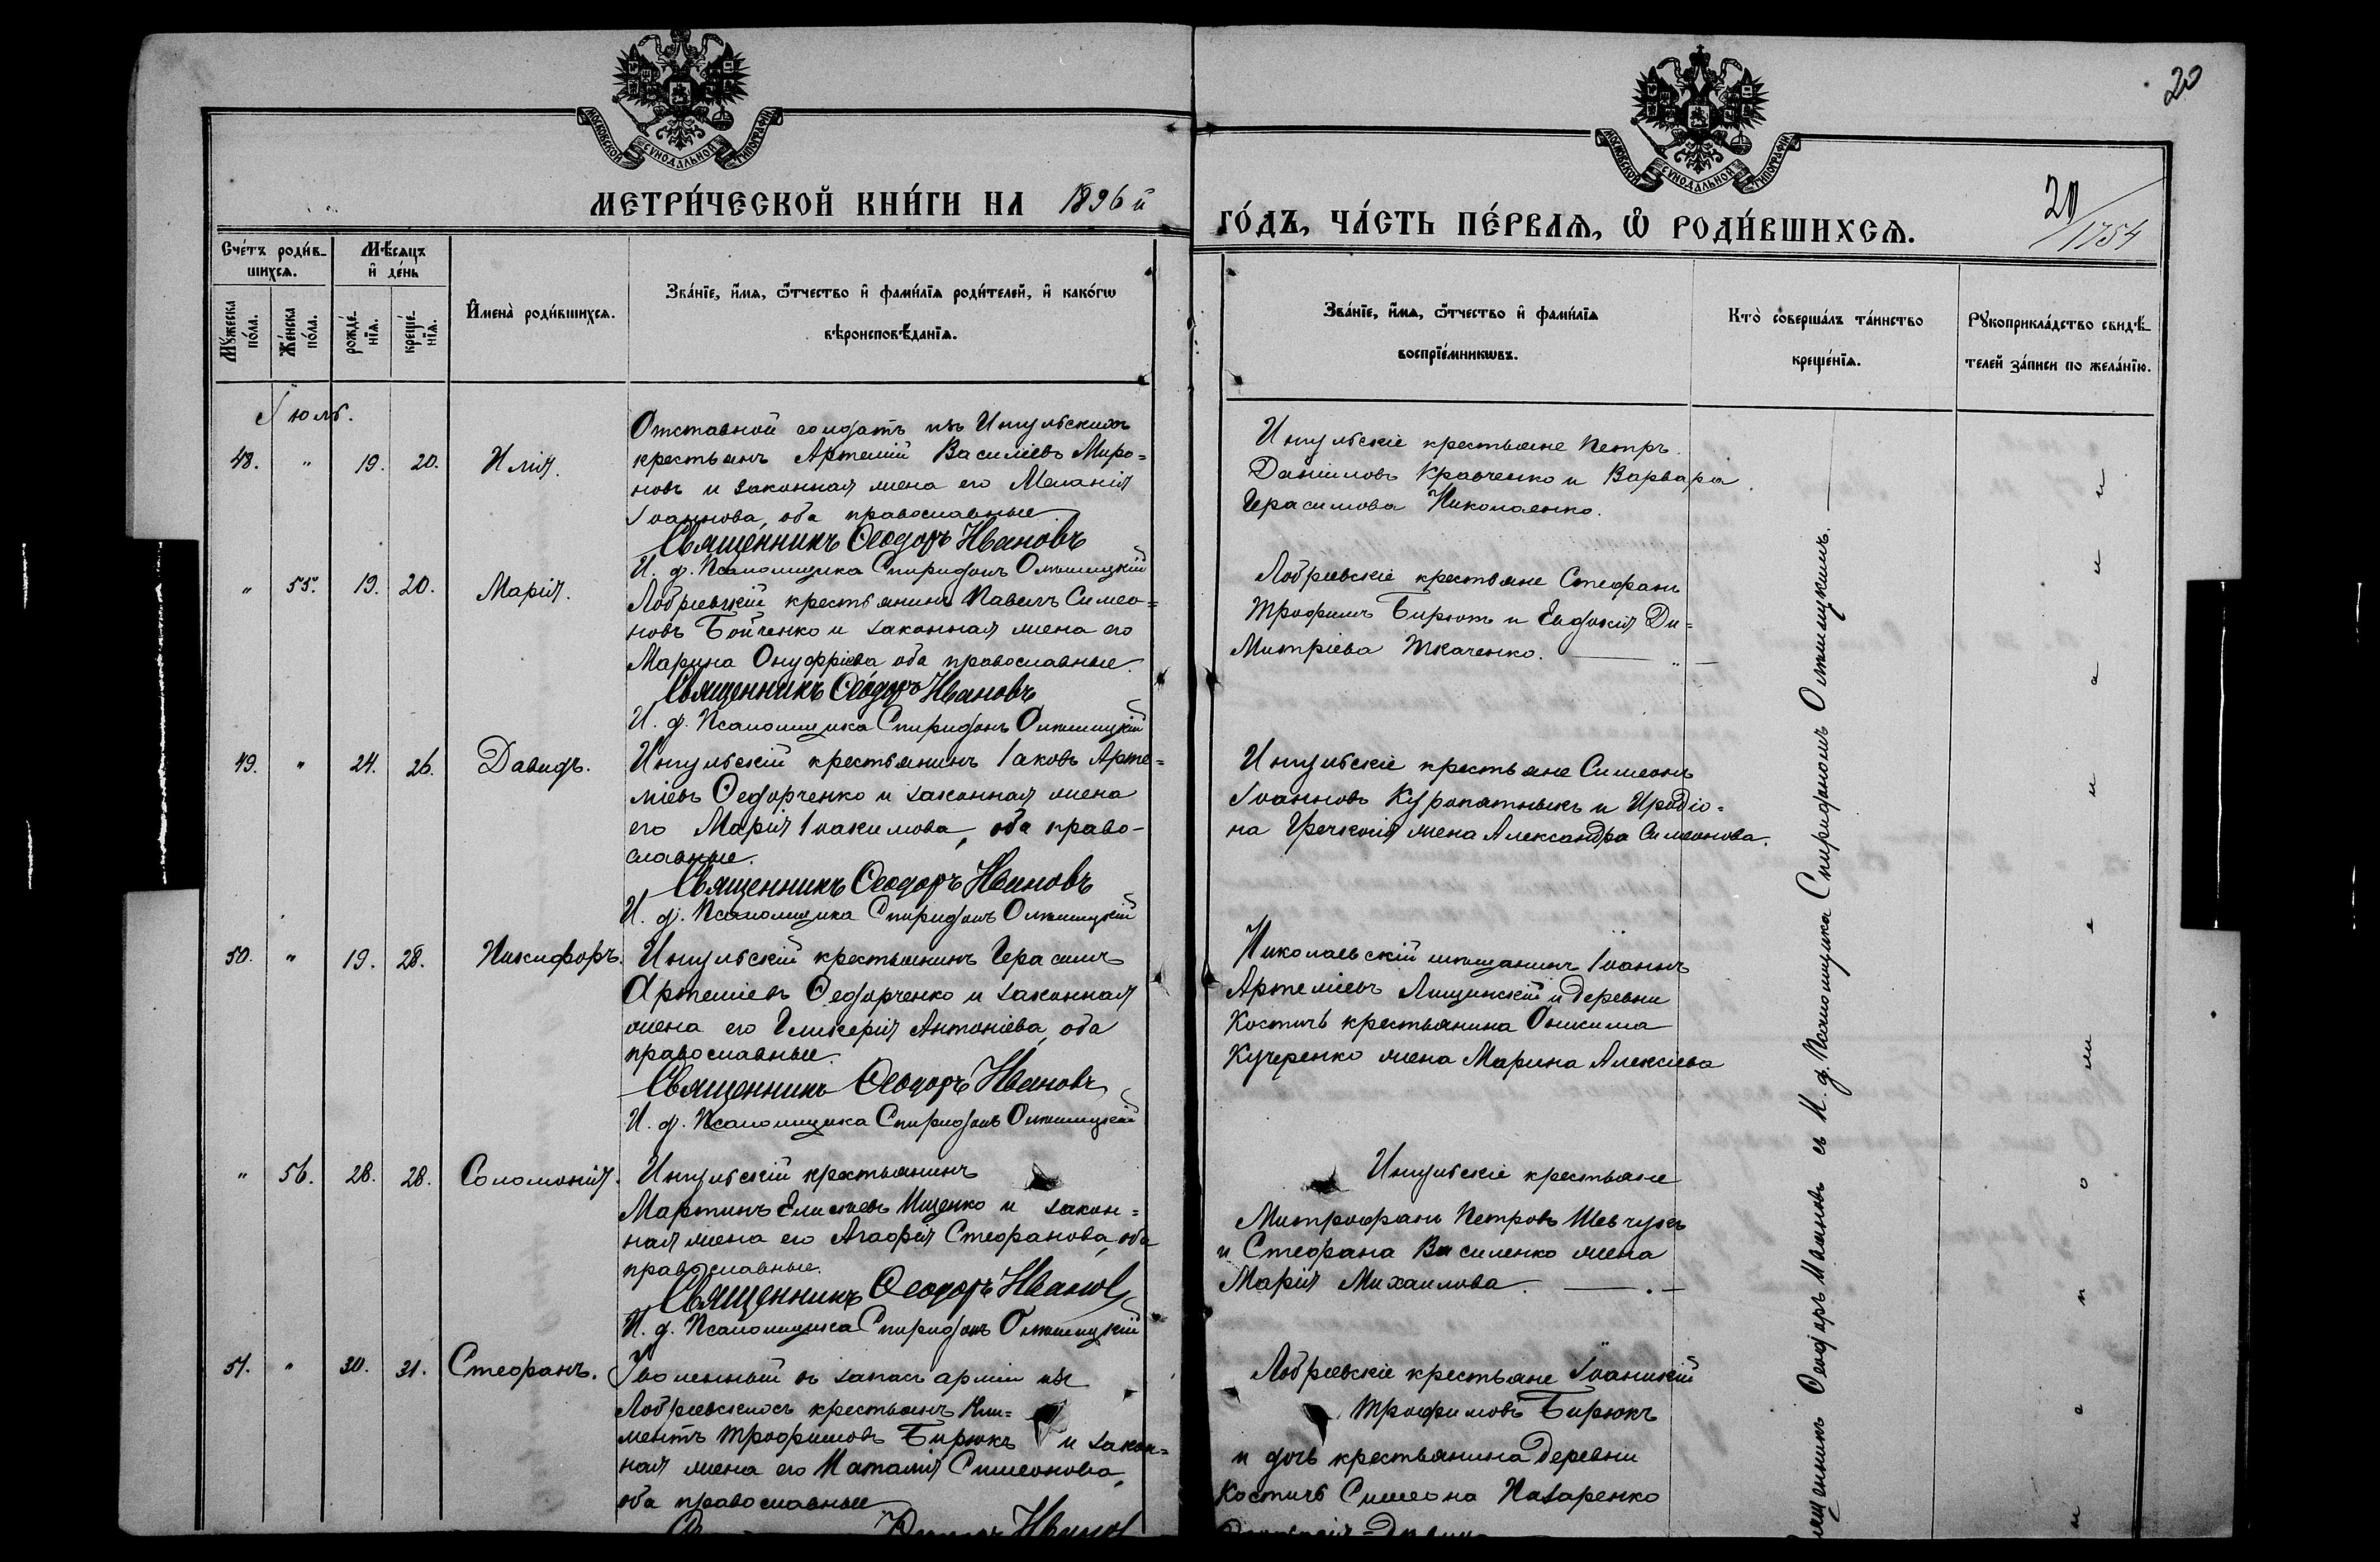 20
МОСКОВСКОЙ СУНОДАЛЬНОЙ ТИПОГРАФІИ
МОСКОВСКОЙ СУНОДАЛЬНОЙ ТИПОГРАФІИ
МЕТРИ́ЧЕСКОЙ КНИ́ГИ НА 1896 й
ГО́ДЪ, ЧА́СТЬ ПЕ́РВАѦ, Ѽ РОДИ́ВШИХСѦ.
20/1754
Сче́тъ роди́в-
шихсѧ.
Мѣ́сѧцъ
и҆ де́нь
Мꙋжеска по́ла.
Же́нска по́ла.
рожде́-нїѧ.
креще́-нїѧ.
И҆мена̀ роди́вшихсѧ.
Зва́нїе, и҆́мѧ, ѻ҆́тчество и҆ фами́лїѧ роди́телей, и҆ како́гѡ
вѣроисповѣ́данїѧ.
Зва́нїе, и҆́мѧ, ѻ҆́тчество и҆ фами́лїѧ
воспрїе́мникѡвъ.
Кто̀ соверша́лъ та́инство
креще́нїѧ.
Рꙋкоприкла́дство свидѣ́-
телей за́писи по жела́нїю.
Іюль.
48. " 19. 20. Илія.
Отставной солдатъ изъ Ингульскихъ
крестьянъ Артемій Василіевъ Миро=
новъ и законная жена его Меланія
Іоаннова, оба православные
Священникъ Ѳеодоръ Ивановъ
И. д. Псаломщика Спиридонъ
Ингульскіе крестьяне Петръ
Даніиловъ Кравченко и Варвара
Герасимова Николаенко.
" 55. 19. 20. Марія.
крестьянинъ Павелъ Симео=
новъ Бойченко и законная жена его
Марина Онуфріева оба православные.
Священникъ Ѳеодоръ Ивановъ
И. д. Псаломщика Спиридонъ
крестьяне Стефанъ
Трофимъ и Евдокія Ди=
митріева Ткаченко.
49. " 24. 26. Давидъ.
Ингульскій крестьянинъ Іаковъ Арте=
міевъ Ѳедорченко и законная жена
его Марія Іоакимова, оба право-
славные.
Священникъ Ѳеодоръ Ивановъ
И. д. Псаломщика Спиридонъ
Ингульскіе крестьяне Симеонъ
Іоанновъ Куропатныкъ и Иродіо=
на жена Александра Симеонова.
50. " 19. 28. Никифоръ.
Ингульскій крестьянинъ Герасимъ
Артеміевъ Ѳедорченко и законная
жена его Гликерія Антоніева, оба
православные.
Священникъ Ѳеодоръ Ивановъ
И. д. Псаломщика Спиридонъ
Николаевскій мѣщанинъ Іоаннъ
Артеміевъ Лищинскій и деревни
Костичъ крестьянина Онисима
Кучеренко жена Марина Алексіева
" 56. 28. 28. Соломонія.
Ингульскій крестьянинъ
Мартинъ Елисіевъ Ищенко и закон=
ная жена его Агафія Стефанова, оба
православные.
Священникъ Ѳеодоръ Ивановъ
И. д. Псаломщика Спиридонъ
Ингульскіе крестьяне
Митрофанъ Петровъ Шевчукъ
и Стефана Василенко жена
Марія Михаилова.
51. " 30. 31. Стефанъ.
Уволенный въ запасъ арміи изъ
крестьянъ Кли=
ментъ Трофимовъ Бирюкъ и закон=
ная жена его Наталія Симеонова,
оба православные
Ивановъ
крестьяне Іоанникій
Трофимовъ Бирюкъ
и дочь крестьянина деревни
Костичъ Симеона Назаренко
Ѳеодоръ Ивановъ съ И. д. Псаломщика Спиридономъ